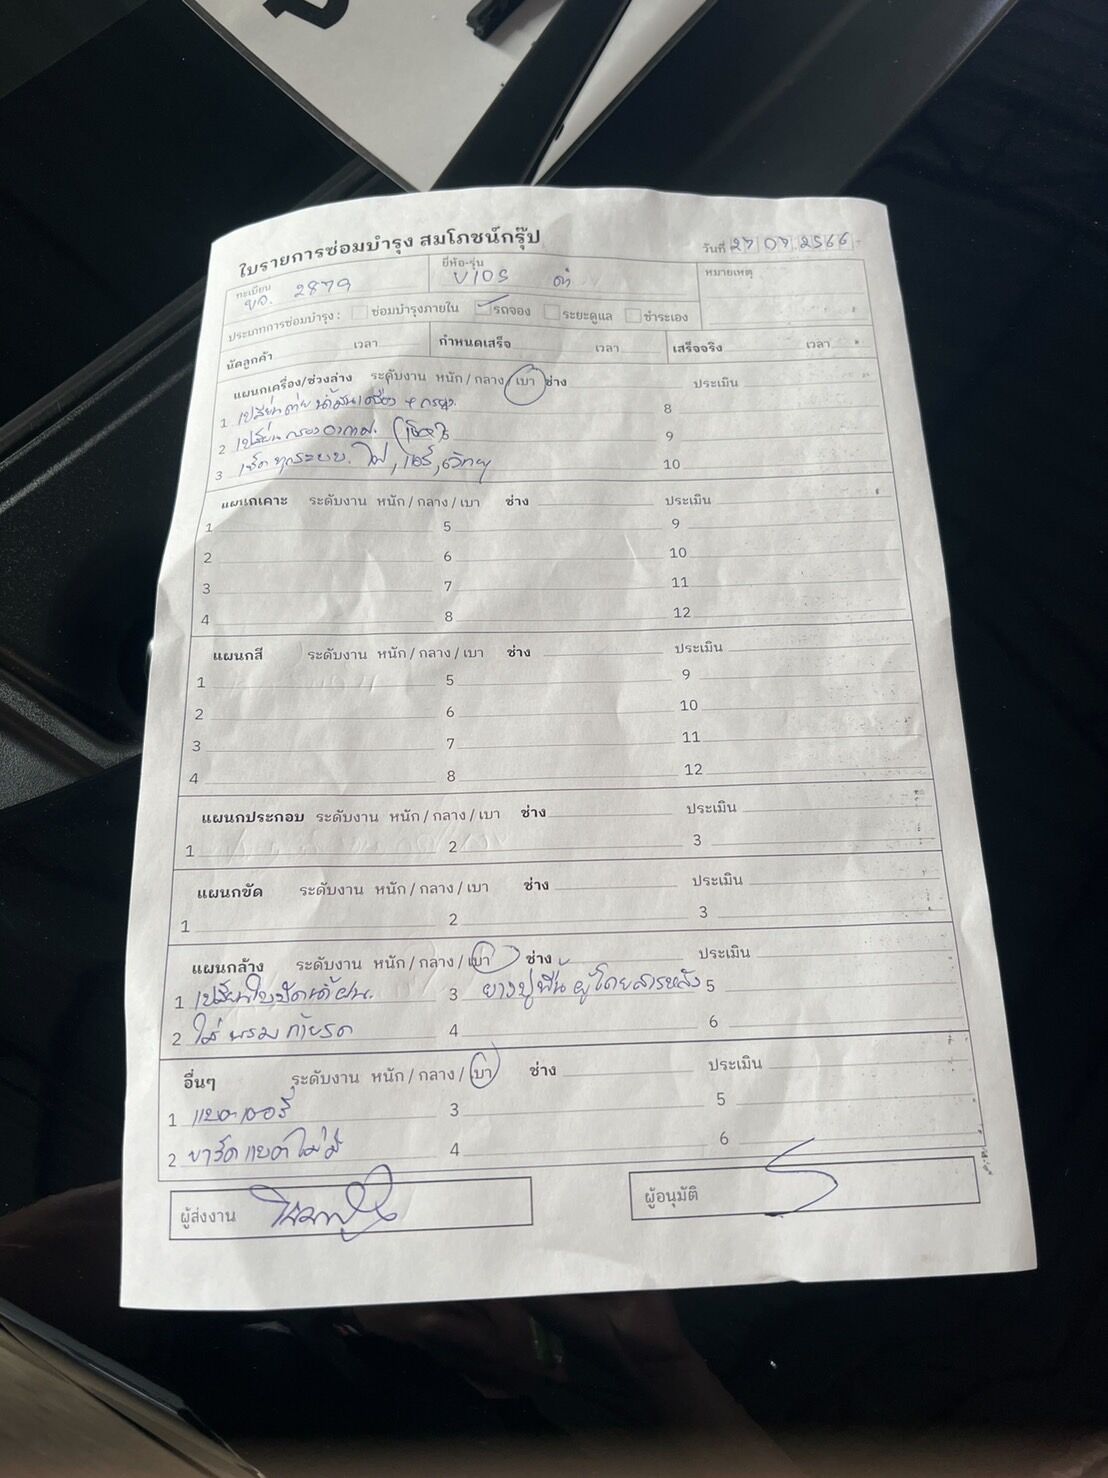 ใบรายการซ่อมบำรุง สมโภชน์กรุ๊ป
วันที่ 27 07 2566
ทะเบียน ขจ. 2879 ยี่ห้อ-รุ่น VIOS ดำ หมายเหตุ
ประเภทการซ่อมบำรุง : ซ่อมบำรุงภายใน รถจอง ระยะดูแล ชำระเอง
นัดลูกค้า เวลา กำหนดเสร็จ เวลา เสร็จจริง เวลา
แผนกเครื่อง/ช่วงล่าง ระดับงาน หนัก / กลาง / เบา ช่าง ประเมิน
1 เปลี่ยนถ่ายน้ำมันเครื่อง + กรอง. 8
2 เปลี่ยนกรองอากาศ. 9
3 เช็คทุกระบบ. ไฟ, แอร์, วิทยุ 10
แผนกเคาะ ระดับงาน หนัก / กลาง / เบา ช่าง ประเมิน
1 5 9
2 6 10
3 7 11
4 8 12
แผนกสี ระดับงาน หนัก / กลาง / เบา ช่าง ประเมิน
1 5 9
2 6 10
3 7 11
4 8 12
แผนกประกอบ ระดับงาน หนัก / กลาง / เบา ช่าง ประเมิน
1 2 3
แผนกขัด ระดับงาน หนัก / กลาง / เบา ช่าง ประเมิน
1 2 3
แผนกล้าง ระดับงาน หนัก / กลาง / เบา ช่าง ประเมิน
1 เปลี่ยนใบปัดน้ำฝน. 3 ยางปูพื้น ผู้โดยสารหลัง 5
2 ใส่ พรม ท้ายรถ 4 6
อื่นๆ ระดับงาน หนัก / กลาง / เบา ช่าง ประเมิน
1 แบตเตอรี่ 3 5
2 ขาร์ดแบตไม่มี 4 6
ผู้ส่งงาน ผู้อนุมัติ